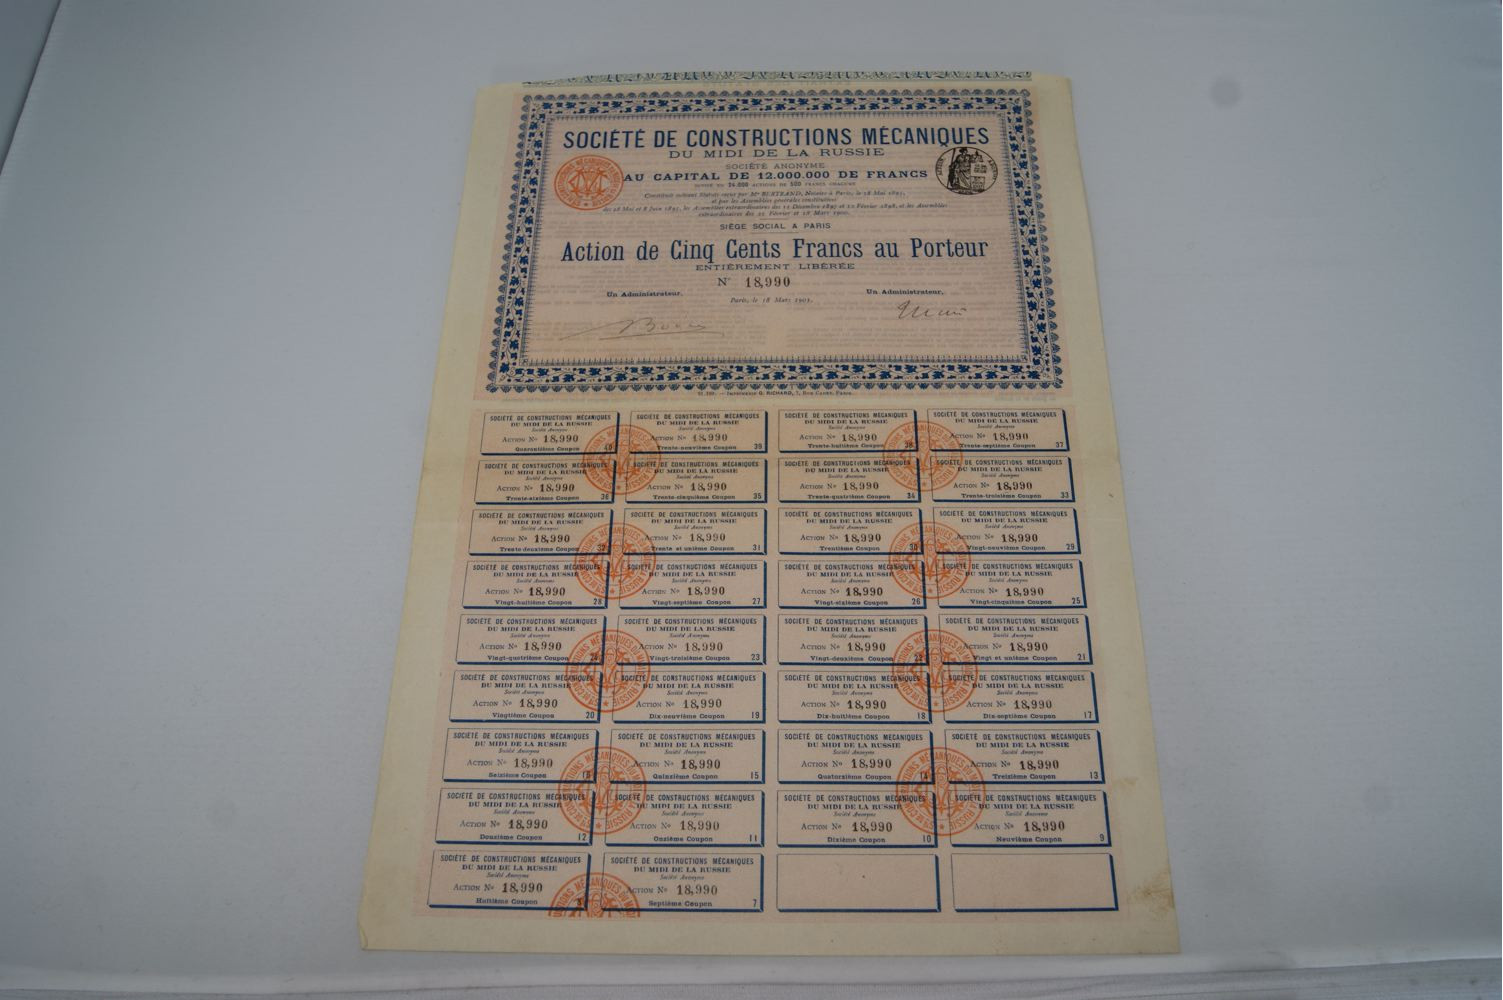 SOCIÉTÉ DE CONSTRUCTIONS MÉCANIQUES
DU MIDI DE LA RUSSIE
SOCIÉTÉ ANONYME
AU CAPITAL DE 12.000.000 DE FRANCS
DIVISÉ EN 24.000 ACTIONS DE 500 FRANCS CHACUNE
Constituée suivant Statuts reçus par Me BERTRAND, Notaire à Paris, le 18 Mai 1895,
et par les Assemblées générales constitutives
des 28 Mai et 8 Juin 1895, les Assemblées extraordinaires des 11 Décembre 1897 et 12 Février 1898, et les Assemblées
extraordinaires des 21 Février et 18 Mars 1900.
SIÈGE SOCIAL A PARIS
Action de Cinq Cents Francs au Porteur
ENTIÈREMENT LIBÉRÉE
N° 18,990
Un Administrateur,
Paris, le 18 Mars 1901.
Un Administrateur,
IMPRIMERIE G. RICHARD, 7, RUE CADET, PARIS.
SOCIÉTÉ DE CONSTRUCTIONS MÉCANIQUES
DU MIDI DE LA RUSSIE
Société Anonyme
ACTION No 18,990
Quarantième Coupon 40
SOCIÉTÉ DE CONSTRUCTIONS MÉCANIQUES
DU MIDI DE LA RUSSIE
Société Anonyme
ACTION No 18,990
Trente-neuvième Coupon 39
SOCIÉTÉ DE CONSTRUCTIONS MÉCANIQUES
DU MIDI DE LA RUSSIE
Société Anonyme
ACTION No 18,990
Trente-huitième Coupon 38
SOCIÉTÉ DE CONSTRUCTIONS MÉCANIQUES
DU MIDI DE LA RUSSIE
Société Anonyme
ACTION No 18,990
Trente-septième Coupon 37
SOCIÉTÉ DE CONSTRUCTIONS MÉCANIQUES
DU MIDI DE LA RUSSIE
Société Anonyme
ACTION No 18,990
Trente-sixième Coupon 36
SOCIÉTÉ DE CONSTRUCTIONS MÉCANIQUES
DU MIDI DE LA RUSSIE
Société Anonyme
ACTION No 18,990
Trente-cinquième Coupon 35
SOCIÉTÉ DE CONSTRUCTIONS MÉCANIQUES
DU MIDI DE LA RUSSIE
Société Anonyme
ACTION No 18,990
Trente-quatrième Coupon 34
SOCIÉTÉ DE CONSTRUCTIONS MÉCANIQUES
DU MIDI DE LA RUSSIE
Société Anonyme
ACTION No 18,990
Trente-troisième Coupon 33
SOCIÉTÉ DE CONSTRUCTIONS MÉCANIQUES
DU MIDI DE LA RUSSIE
Société Anonyme
ACTION No 18,990
Trente deuxième Coupon 32
SOCIÉTÉ DE CONSTRUCTIONS MÉCANIQUES
DU MIDI DE LA RUSSIE
Société Anonyme
ACTION No 18,990
Trente et unième Coupon 31
SOCIÉTÉ DE CONSTRUCTIONS MÉCANIQUES
DU MIDI DE LA RUSSIE
Société Anonyme
ACTION No 18,990
Trentième Coupon 30
SOCIÉTÉ DE CONSTRUCTIONS MÉCANIQUES
DU MIDI DE LA RUSSIE
Société Anonyme
ACTION No 18,990
Vingt-neuvième Coupon 29
SOCIÉTÉ DE CONSTRUCTIONS MÉCANIQUES
DU MIDI DE LA RUSSIE
Société Anonyme
ACTION No 18,990
Vingt-huitième Coupon 28
SOCIÉTÉ DE CONSTRUCTIONS MÉCANIQUES
DU MIDI DE LA RUSSIE
Société Anonyme
ACTION No 18,990
Vingt-septième Coupon 27
SOCIÉTÉ DE CONSTRUCTIONS MÉCANIQUES
DU MIDI DE LA RUSSIE
Société Anonyme
ACTION No 18,990
Vingt-sixième Coupon 26
SOCIÉTÉ DE CONSTRUCTIONS MÉCANIQUES
DU MIDI DE LA RUSSIE
Société Anonyme
ACTION No 18,990
Vingt-cinquième Coupon 25
SOCIÉTÉ DE CONSTRUCTIONS MÉCANIQUES
DU MIDI DE LA RUSSIE
Société Anonyme
ACTION No 18,990
Vingt-quatrième Coupon 24
SOCIÉTÉ DE CONSTRUCTIONS MÉCANIQUES
DU MIDI DE LA RUSSIE
Société Anonyme
ACTION No 18,990
Vingt-troisième Coupon 23
SOCIÉTÉ DE CONSTRUCTIONS MÉCANIQUES
DU MIDI DE LA RUSSIE
Société Anonyme
ACTION No 18,990
Vingt-deuxième Coupon 22
SOCIÉTÉ DE CONSTRUCTIONS MÉCANIQUES
DU MIDI DE LA RUSSIE
Société Anonyme
ACTION No 18,990
Vingt et unième Coupon 21
SOCIÉTÉ DE CONSTRUCTIONS MÉCANIQUES
DU MIDI DE LA RUSSIE
Société Anonyme
ACTION No 18,990
Vingtième Coupon 20
SOCIÉTÉ DE CONSTRUCTIONS MÉCANIQUES
DU MIDI DE LA RUSSIE
Société Anonyme
ACTION No 18,990
Dix-neuvième Coupon 19
SOCIÉTÉ DE CONSTRUCTIONS MÉCANIQUES
DU MIDI DE LA RUSSIE
Société Anonyme
ACTION No 18,990
Dix-huitième Coupon 18
SOCIÉTÉ DE CONSTRUCTIONS MÉCANIQUES
DU MIDI DE LA RUSSIE
Société Anonyme
ACTION No 18,990
Dix-septième Coupon 17
SOCIÉTÉ DE CONSTRUCTIONS MÉCANIQUES
DU MIDI DE LA RUSSIE
Société Anonyme
ACTION No 18,990
Seizième Coupon 16
SOCIÉTÉ DE CONSTRUCTIONS MÉCANIQUES
DU MIDI DE LA RUSSIE
Société Anonyme
ACTION No 18,990
Quinzième Coupon 15
SOCIÉTÉ DE CONSTRUCTIONS MÉCANIQUES
DU MIDI DE LA RUSSIE
Société Anonyme
ACTION No 18,990
Quatorzième Coupon 14
SOCIÉTÉ DE CONSTRUCTIONS MÉCANIQUES
DU MIDI DE LA RUSSIE
Société Anonyme
ACTION No 18,990
Treizième Coupon 13
SOCIÉTÉ DE CONSTRUCTIONS MÉCANIQUES
DU MIDI DE LA RUSSIE
Société Anonyme
ACTION No 18,990
Douzième Coupon 12
SOCIÉTÉ DE CONSTRUCTIONS MÉCANIQUES
DU MIDI DE LA RUSSIE
Société Anonyme
ACTION No 18,990
Onzième Coupon 11
SOCIÉTÉ DE CONSTRUCTIONS MÉCANIQUES
DU MIDI DE LA RUSSIE
Société Anonyme
ACTION No 18,990
Dixième Coupon 10
SOCIÉTÉ DE CONSTRUCTIONS MÉCANIQUES
DU MIDI DE LA RUSSIE
Société Anonyme
ACTION No 18,990
Neuvième Coupon 9
SOCIÉTÉ DE CONSTRUCTIONS MÉCANIQUES
DU MIDI DE LA RUSSIE
Société Anonyme
ACTION No 18,990
Huitième Coupon 8
SOCIÉTÉ DE CONSTRUCTIONS MÉCANIQUES
DU MIDI DE LA RUSSIE
Société Anonyme
ACTION No 18,990
Septième Coupon 7